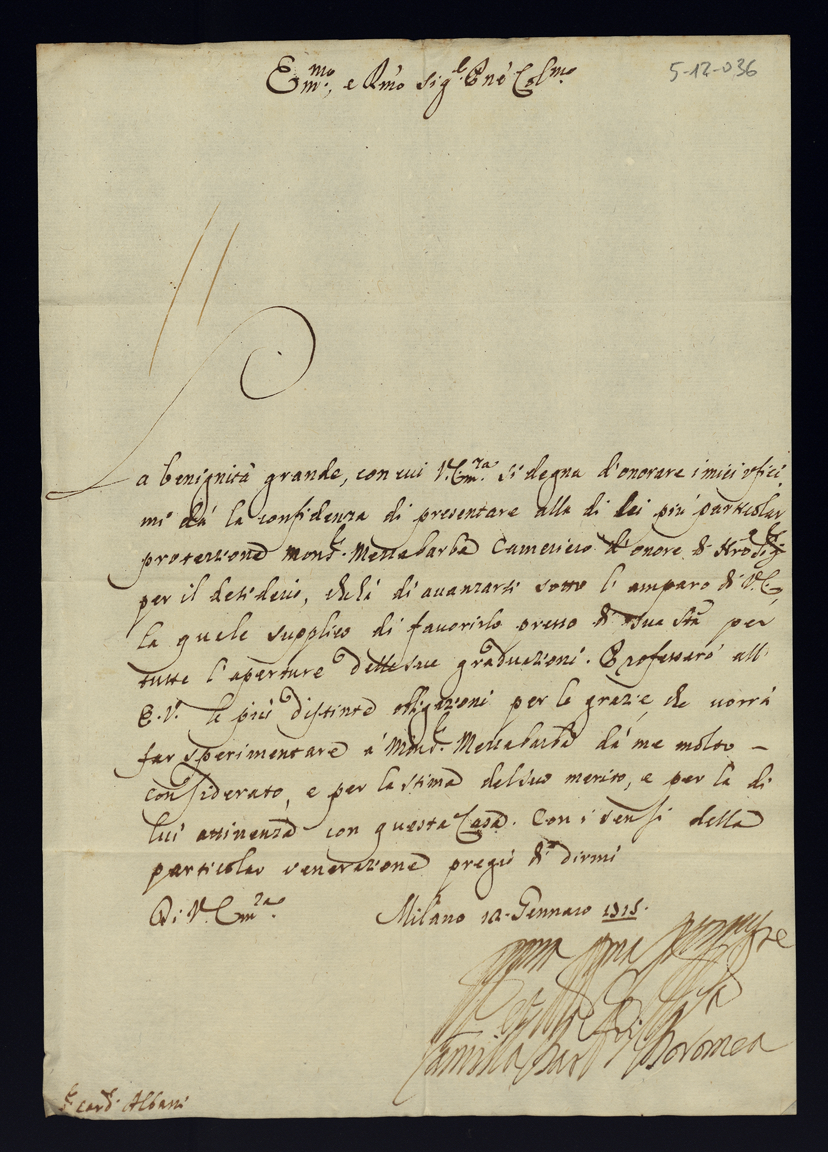 5-12-036
Em.mo, e Rmo Sig.r Pne Col.mo
La benignità grande, con cui V. Em.za si degna d'onorare i miei ufici
mi dà la confidenza di presentare alla di lei più particolar
protezione Mons.r Mezzabarba Cameriero d'onore di
per il desiderio, ch'hà di avanzarsi sotto l'amparo di V. E.
la quale supplico di favorirlo presso di sua Stà per
tutte l'aperture delle sue graduazioni. Professarò all'
E. V. le più distinte obligazioni per le grazie, che vorrà
far sperimentare à Mons.r Mezzabarba dà me molto –
considerato, e per la stima del suo merito, e per la di
lui attinenza con questa Casa. Con i sensi della
particolar venerazione pregio di dirmi
Di V. Em.za Milano 12 Gennaro 1715.
Camilla Bar Boromea
S.r Card. Albani